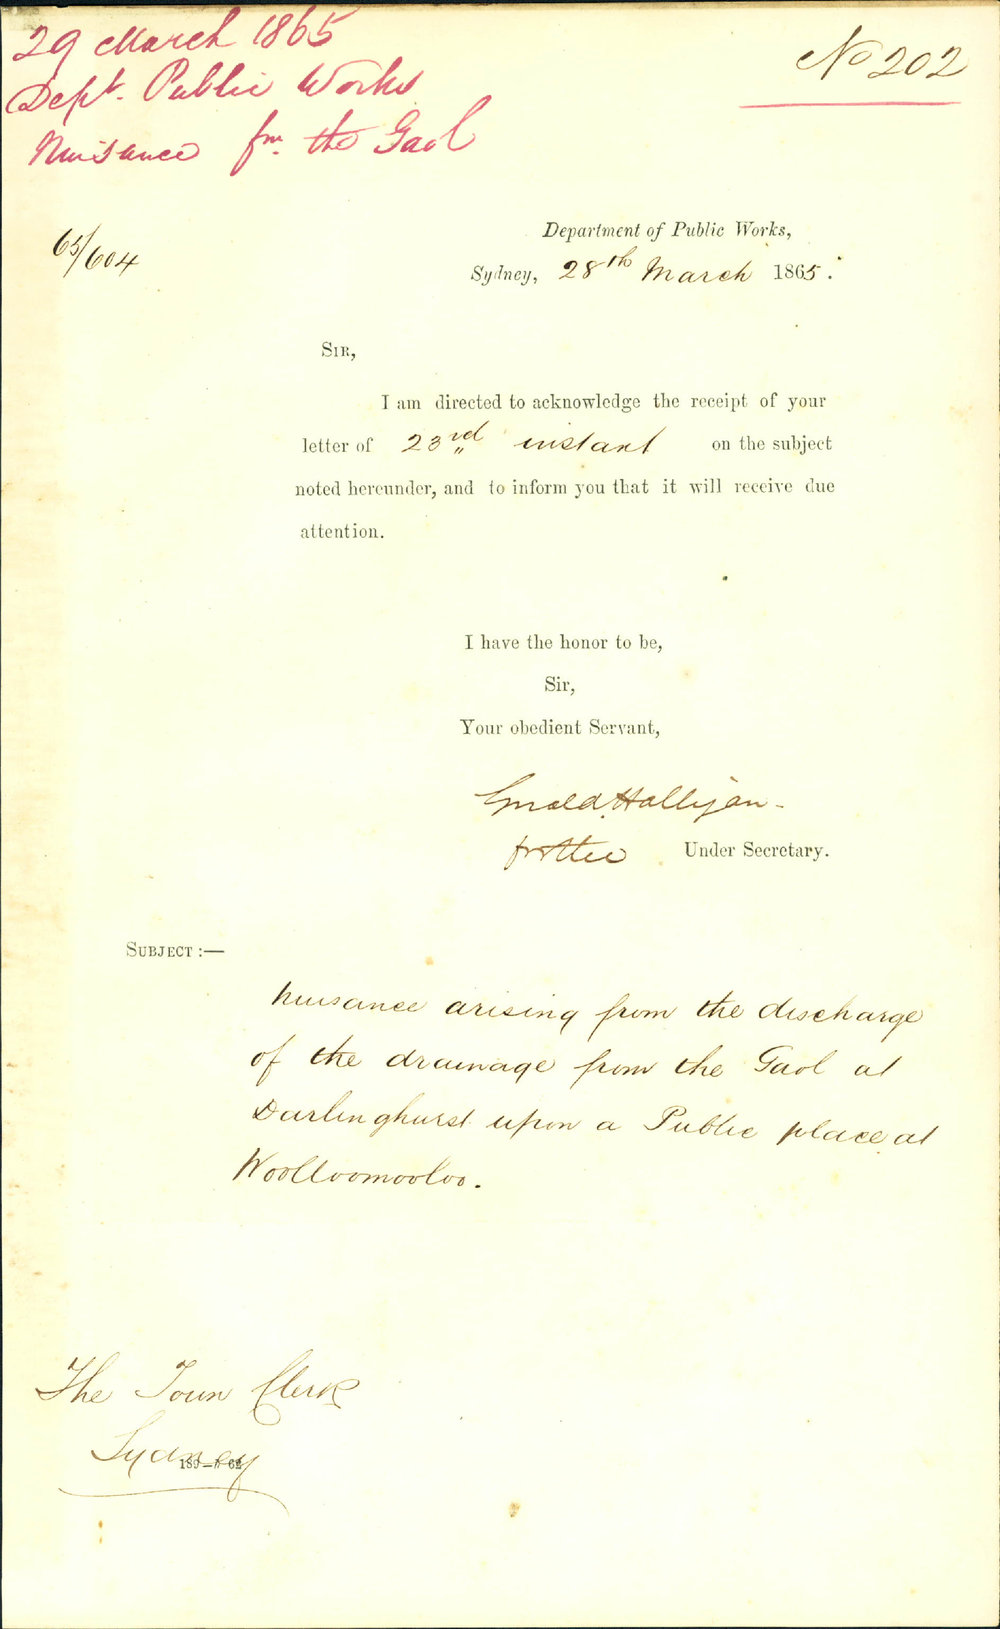 29 March 1865
Dept. Public Works
Nuisance fm. the Gaol
No 202
65/604
Department of Public Works,
Sydney, 28th March 1865.
SIR,
I am directed to acknowledge the receipt of your
letter of 23rd instant on the subject
noted hereunder, and to inform you that it will receive due
attention.
I have the honor to be,
Sir,
Your obedient Servant,
Gerald Halligan
for the Under Secretary.
SUBJECT :—
Nuisance arising from the discharge
of the drainage from the Gaol at
Darlinghurst upon a Public place at
Woolloomooloo.
The Town Clerk
Sydney